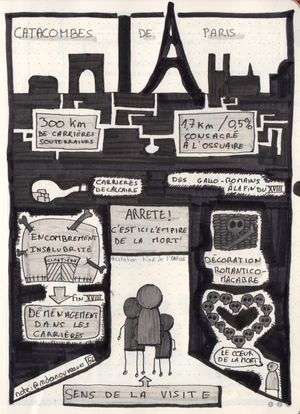 CATACOMBES DE PARIS
300 km
DE CARRIÈRES
SOUTERRAINES
1,7 km / 0,5%
CONSACRÉ
À L'OSSUAIRE
CARRIÈRES
DE CALCAIRE
DES GALLO-ROMAINS
À LA FIN DU XVIII
ENCOMBREMENT
INSALUBRITÉ
CIMETIÈRE
ARRETE!
C'EST ICI L'EMPIRE
DE LA MORT
DÉCORATION
ROMANTICO-
MACABRE
FIN XVIII
DÉMÉNAGEMENT
DANS LES
CARRIÈRES
LE CŒUR
DE LA MORT
SENS DE LA VISITE